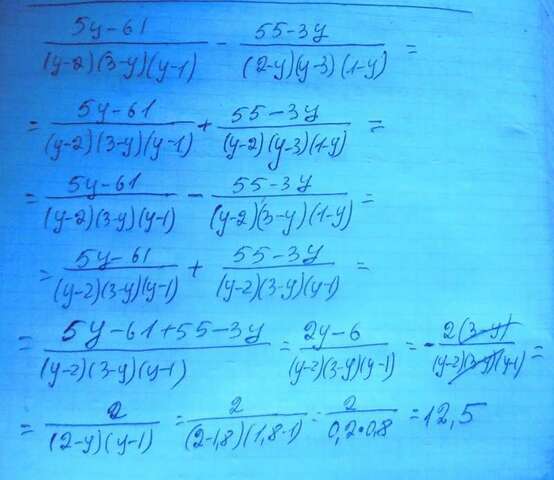 (5y-61)/((y-2)(3-y)(y-1)) - (55-3y)/((2-y)(y-3)(1-y)) =
= (5y-61)/((y-2)(3-y)(y-1)) + (55-3y)/((y-2)(y-3)(1-y)) =
= (5y-61)/((y-2)(3-y)(y-1)) - (55-3y)/((y-2)(3-y)(1-y)) =
= (5y-61)/((y-2)(3-y)(y-1)) + (55-3y)/((y-2)(3-y)(y-1)) =
= (5y-61+55-3y)/((y-2)(3-y)(y-1)) = (2y-6)/((y-2)(3-y)(y-1)) = - (2(3-y))/((y-2)(3-y)(y-1)) =
= 2/((2-y)(y-1)) = 2/((2-1,8)(1,8-1)) = 2/(0,2•0,8) = 12,5